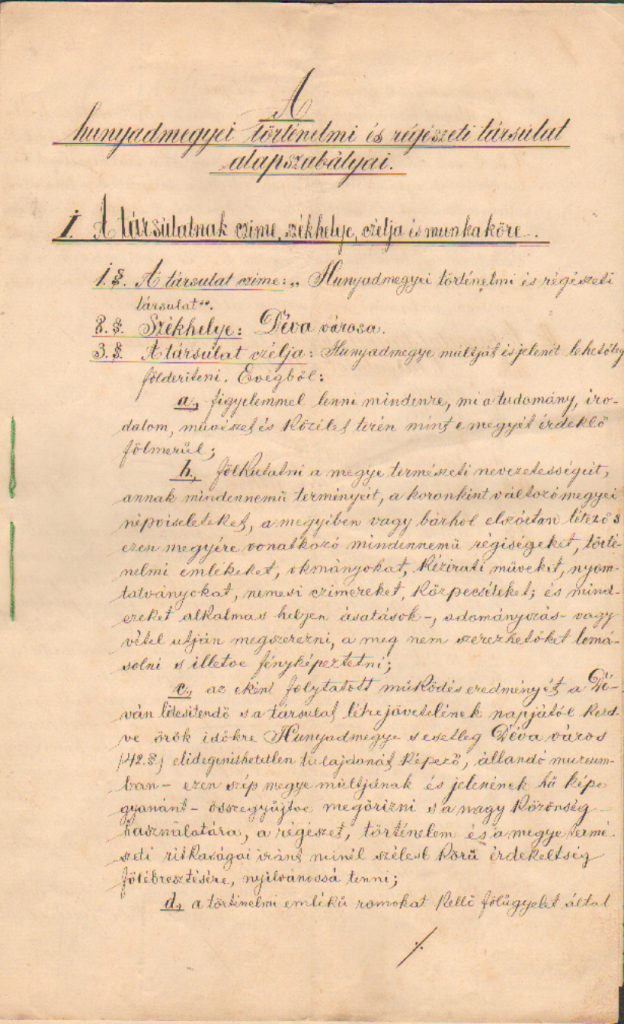 A
hunyadmegyei történelmi és régészeti társúlat
alapszabályai.
I. A társúlatnak czime, székhelye, czélja és munkaköre.
1. §. A társulat czime: „Hunyadmegyei történelmi és régészeti
társulat".
2. §. Székhelye: Déva városa.
3. §. A társúlat czélja: Hunyadmegye múltját és jelenét lehetőleg
földeriteni. Evégből:
a., figyelemmel lenni mindenre, mi a tudomány, iro-
dalom, művészet és közélet terén mint e megyét érdeklő
fölmerül;
b., fölkutatni a megye természeti nevezetességeit,
annak mindennemű terményeit, a koronkint változó megyei
népviseleteket, a megyében vagy bárhol elszórtan létező s
ezen megyére vonatkozó mindennemű régiségeket, törté-
nelmi emlékeket, okmányokat, kézirati műveket, nyom-
tatványokat, nemesi czimereket, közpecséteket; és mind-
ezeket alkalmas helyen ásatások-, adományozás- vagy
vétel utján megszerezni, a meg nem szerezhetőket lemá-
solni s illetve fényképeztetni;
c., az ekint folytatott működés eredményét a Dé-
ván létesitendő s a társulat létrejövetelének napjától kezd-
ve örök időkre Hunyadmegye s esetleg Déva város
(42. §) elidegenithetetlen tulajdonát képező, állandó muzeum-
ban - ezen szép megye múltjának és jelenének hű képe
gyanánt - összegyűjtve megőrizni s a nagy közönség
használatára, a régészet, történelem és a megye termé-
szeti ritkaságai iránt minél szélesb körű érdekeltség
fölébresztésére, nyilvánossá tenni;
d., a történelmi emlékű romokat kellő fölügyelet által
./.